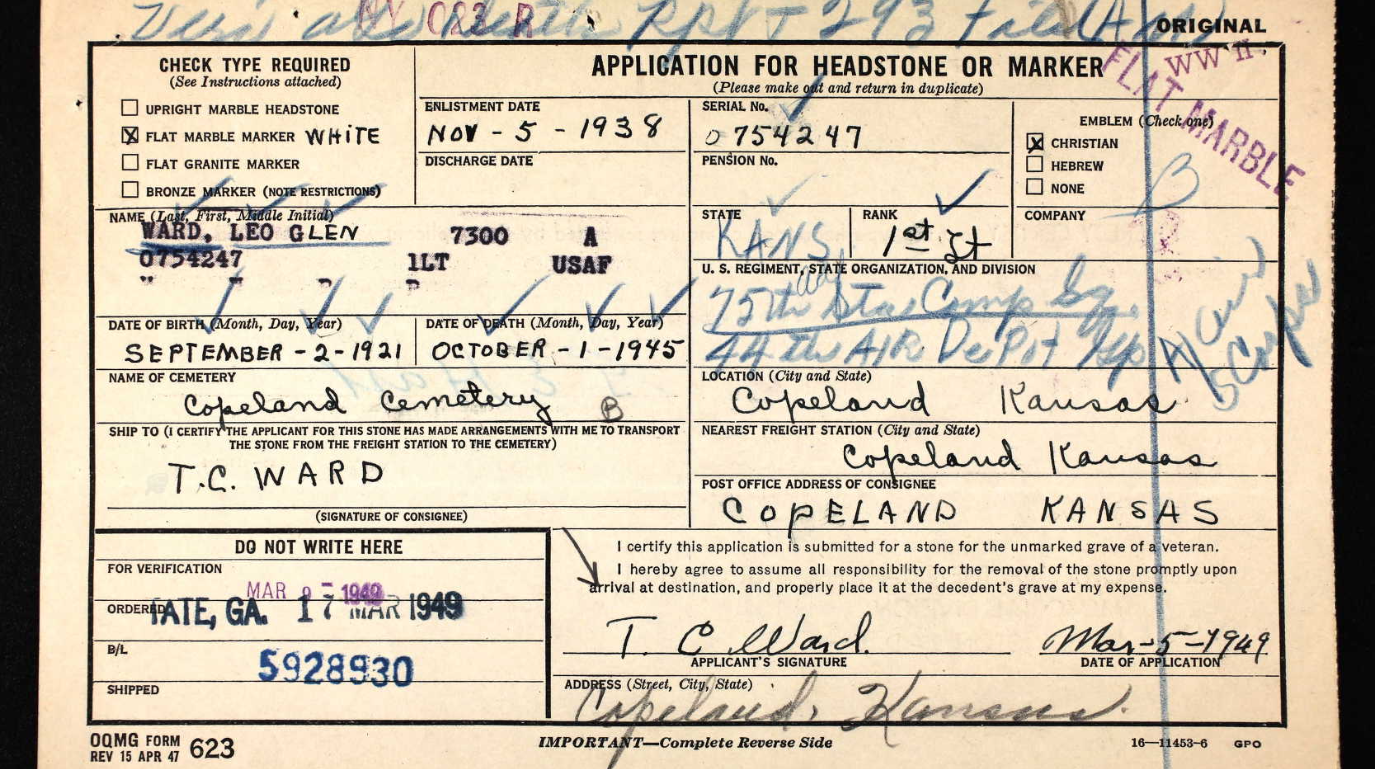 ORIGINAL
WW II
FLAT MARBLE
CHECK TYPE REQUIRED
(See Instructions attached)
UPRIGHT MARBLE HEADSTONE
FLAT MARBLE MARKER WHITE
FLAT GRANITE MARKER
BRONZE MARKER (NOTE RESTRICTIONS)
APPLICATION FOR HEADSTONE OR MARKER
(Please make out and return in duplicate)
ENLISTMENT DATE
NOV - 5 - 1938
DISCHARGE DATE
SERIAL No.
0754247
PENSION No.
EMBLEM (Check one)
CHRISTIAN
HEBREW
NONE
B
NAME (Last, First, Middle Initial)
WARD, LEO GLEN 7300 A
0754247 1LT USAF
STATE
KANS
RANK
1st Lt
COMPANY
U. S. REGIMENT, STATE ORGANIZATION, AND DIVISION
75th Sta Comp Sq
44th AIR DePOT Gp
DATE OF BIRTH (Month, Day, Year)
SEPTEMBER - 2 - 1921
DATE OF DEATH (Month, Day, Year)
OCTOBER - 1 - 1945
NAME OF CEMETERY
Copeland Cemetery B
LOCATION (City and State)
Copeland Kansas
SHIP TO (I CERTIFY THE APPLICANT FOR THIS STONE HAS MADE ARRANGEMENTS WITH ME TO TRANSPORT
THE STONE FROM THE FREIGHT STATION TO THE CEMETERY)
T.C. WARD
(SIGNATURE OF CONSIGNEE)
NEAREST FREIGHT STATION (City and State)
Copeland Kansas
POST OFFICE ADDRESS OF CONSIGNEE
COPELAND KANSAS
DO NOT WRITE HERE
FOR VERIFICATION
MAR 1949
ORDERED TATE, GA. 17 MAR 1949
B/L
5928930
SHIPPED
I certify this application is submitted for a stone for the unmarked grave of a veteran.
I hereby agree to assume all responsibility for the removal of the stone promptly upon
arrival at destination, and properly place it at the decedent's grave at my expense.
T. C. Ward. Mar-5-1949
APPLICANT'S SIGNATURE DATE OF APPLICATION
ADDRESS (Street, City, State)
Copeland, Kansas.
OQMG FORM 623
REV 15 APR 47
IMPORTANT—Complete Reverse Side
16—11453-6 GPO